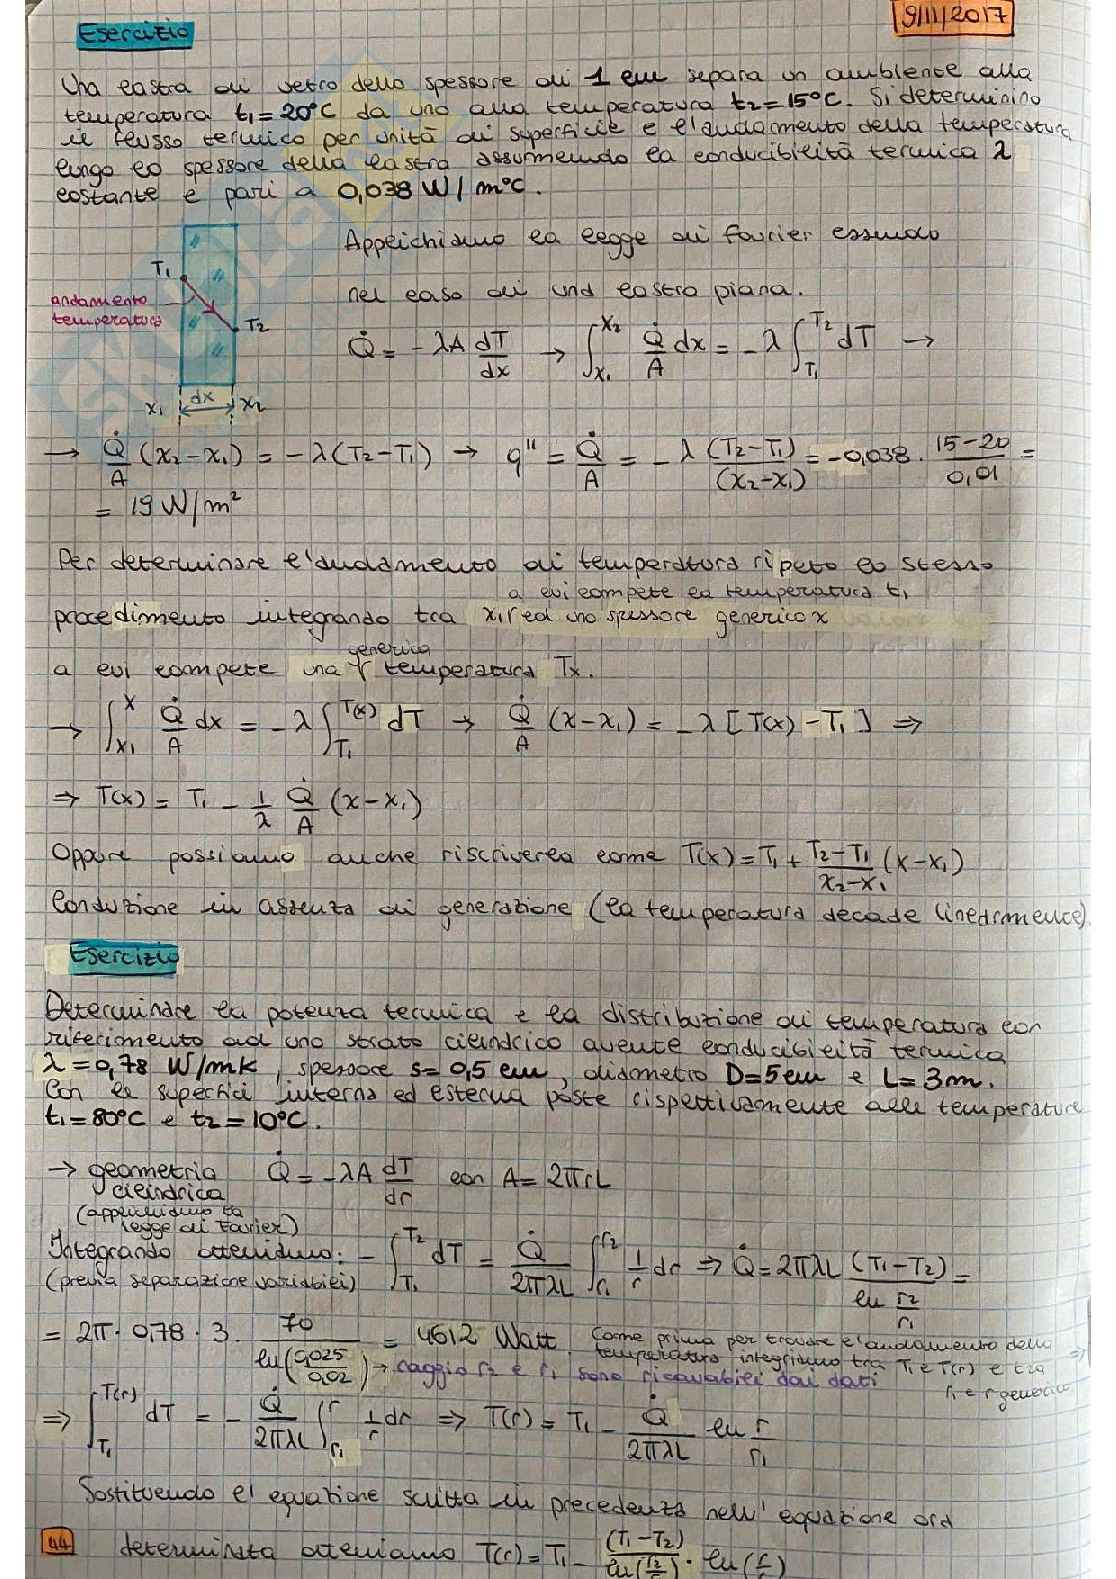 Esercizio
9/11/2017
Una lastra di vetro dello spessore di 1 cm separa un ambiente alla
temperatura t₁=20°C da uno alla temperatura t₂=15°C. Si determinino
il flusso termico per unità di superficie e l'andamento della temperatura
lungo lo spessore della lastra assumendo la conducibilità termica λ
costante e pari a 0,038 W/m°C.
Applichiamo la legge di Fourier essendo
nel caso di una lastra piana.
T₁
andamento
temperatura
T₂
x₁ dx x₂
Q̇ = -λA dT/dx → ∫_{x₁}^{x₂} Q̇/A dx = -λ ∫_{T₁}^{T₂} dT →
→ Q̇/A (x₂-x₁) = -λ(T₂-T₁) → q'' = Q̇/A = -λ (T₂-T₁)/(x₂-x₁) = -0,038 · (15-20)/0,01 =
= 19 W/m²
Per determinare l'andamento di temperatura ripeto lo stesso
a cui compete la temperatura t₁
procedimento integrando tra x₁ ed uno spessore generico x
a cui compete una generica temperatura Tx.
→ ∫_{x₁}^{x} Q̇/A dx = -λ ∫_{T₁}^{T(x)} dT → Q̇/A (x-x₁) = -λ[T(x)-T₁] ⇒
⇒ T(x) = T₁ - 1/λ Q̇/A (x-x₁)
Oppure possiamo anche riscriverla come T(x)=T₁ + (T₂-T₁)/(x₂-x₁) (x-x₁)
Conduzione in assenza di generazione (la temperatura decade linearmente)
Esercizio
Determinare la potenza termica e la distribuzione di temperatura con
riferimento ad uno strato cilindrico avente conducibilità termica
λ=0,78 W/mk, spessore s=0,5 cm, diametro D=5cm e L=3m.
Con le superfici interna ed esterna poste rispettivamente alle temperature
t₁=80°C e t₂=10°C.
→ geometria cilindrica Q̇ = -λA dT/dr con A=2πrL
(applichiamo la
legge di Fourier)
Integrando otteniamo: -∫_{T₁}^{T₂} dT = Q̇/(2πλL) ∫_{r₁}^{r₂} 1/r dr ⇒ Q̇=2πλL (T₁-T₂)/(ln r₂/r₁) =
(previa separazione variabili)
= 2π · 0,78 · 3 · 70/ln(0,025/0,02) = 4612 Watt. Come prima per trovare l'andamento della
temperatura integriamo tra T₁ e T(r) e tra ⇒
r₁ e r generico
→ raggio r₂ e r₁ sono ricavabili dai dati
⇒ ∫_{T₁}^{T(r)} dT = - Q̇/(2πλL) ∫_{r₁}^{r} 1/r dr ⇒ T(r) = T₁ - Q̇/(2πλL) ln r/r₁
Sostituendo l'equazione scritta in precedenza nell'equazione ora
44
determinata otteniamo T(r)=T₁ - (T₁-T₂)/ln(r₂/r₁) · ln(r/